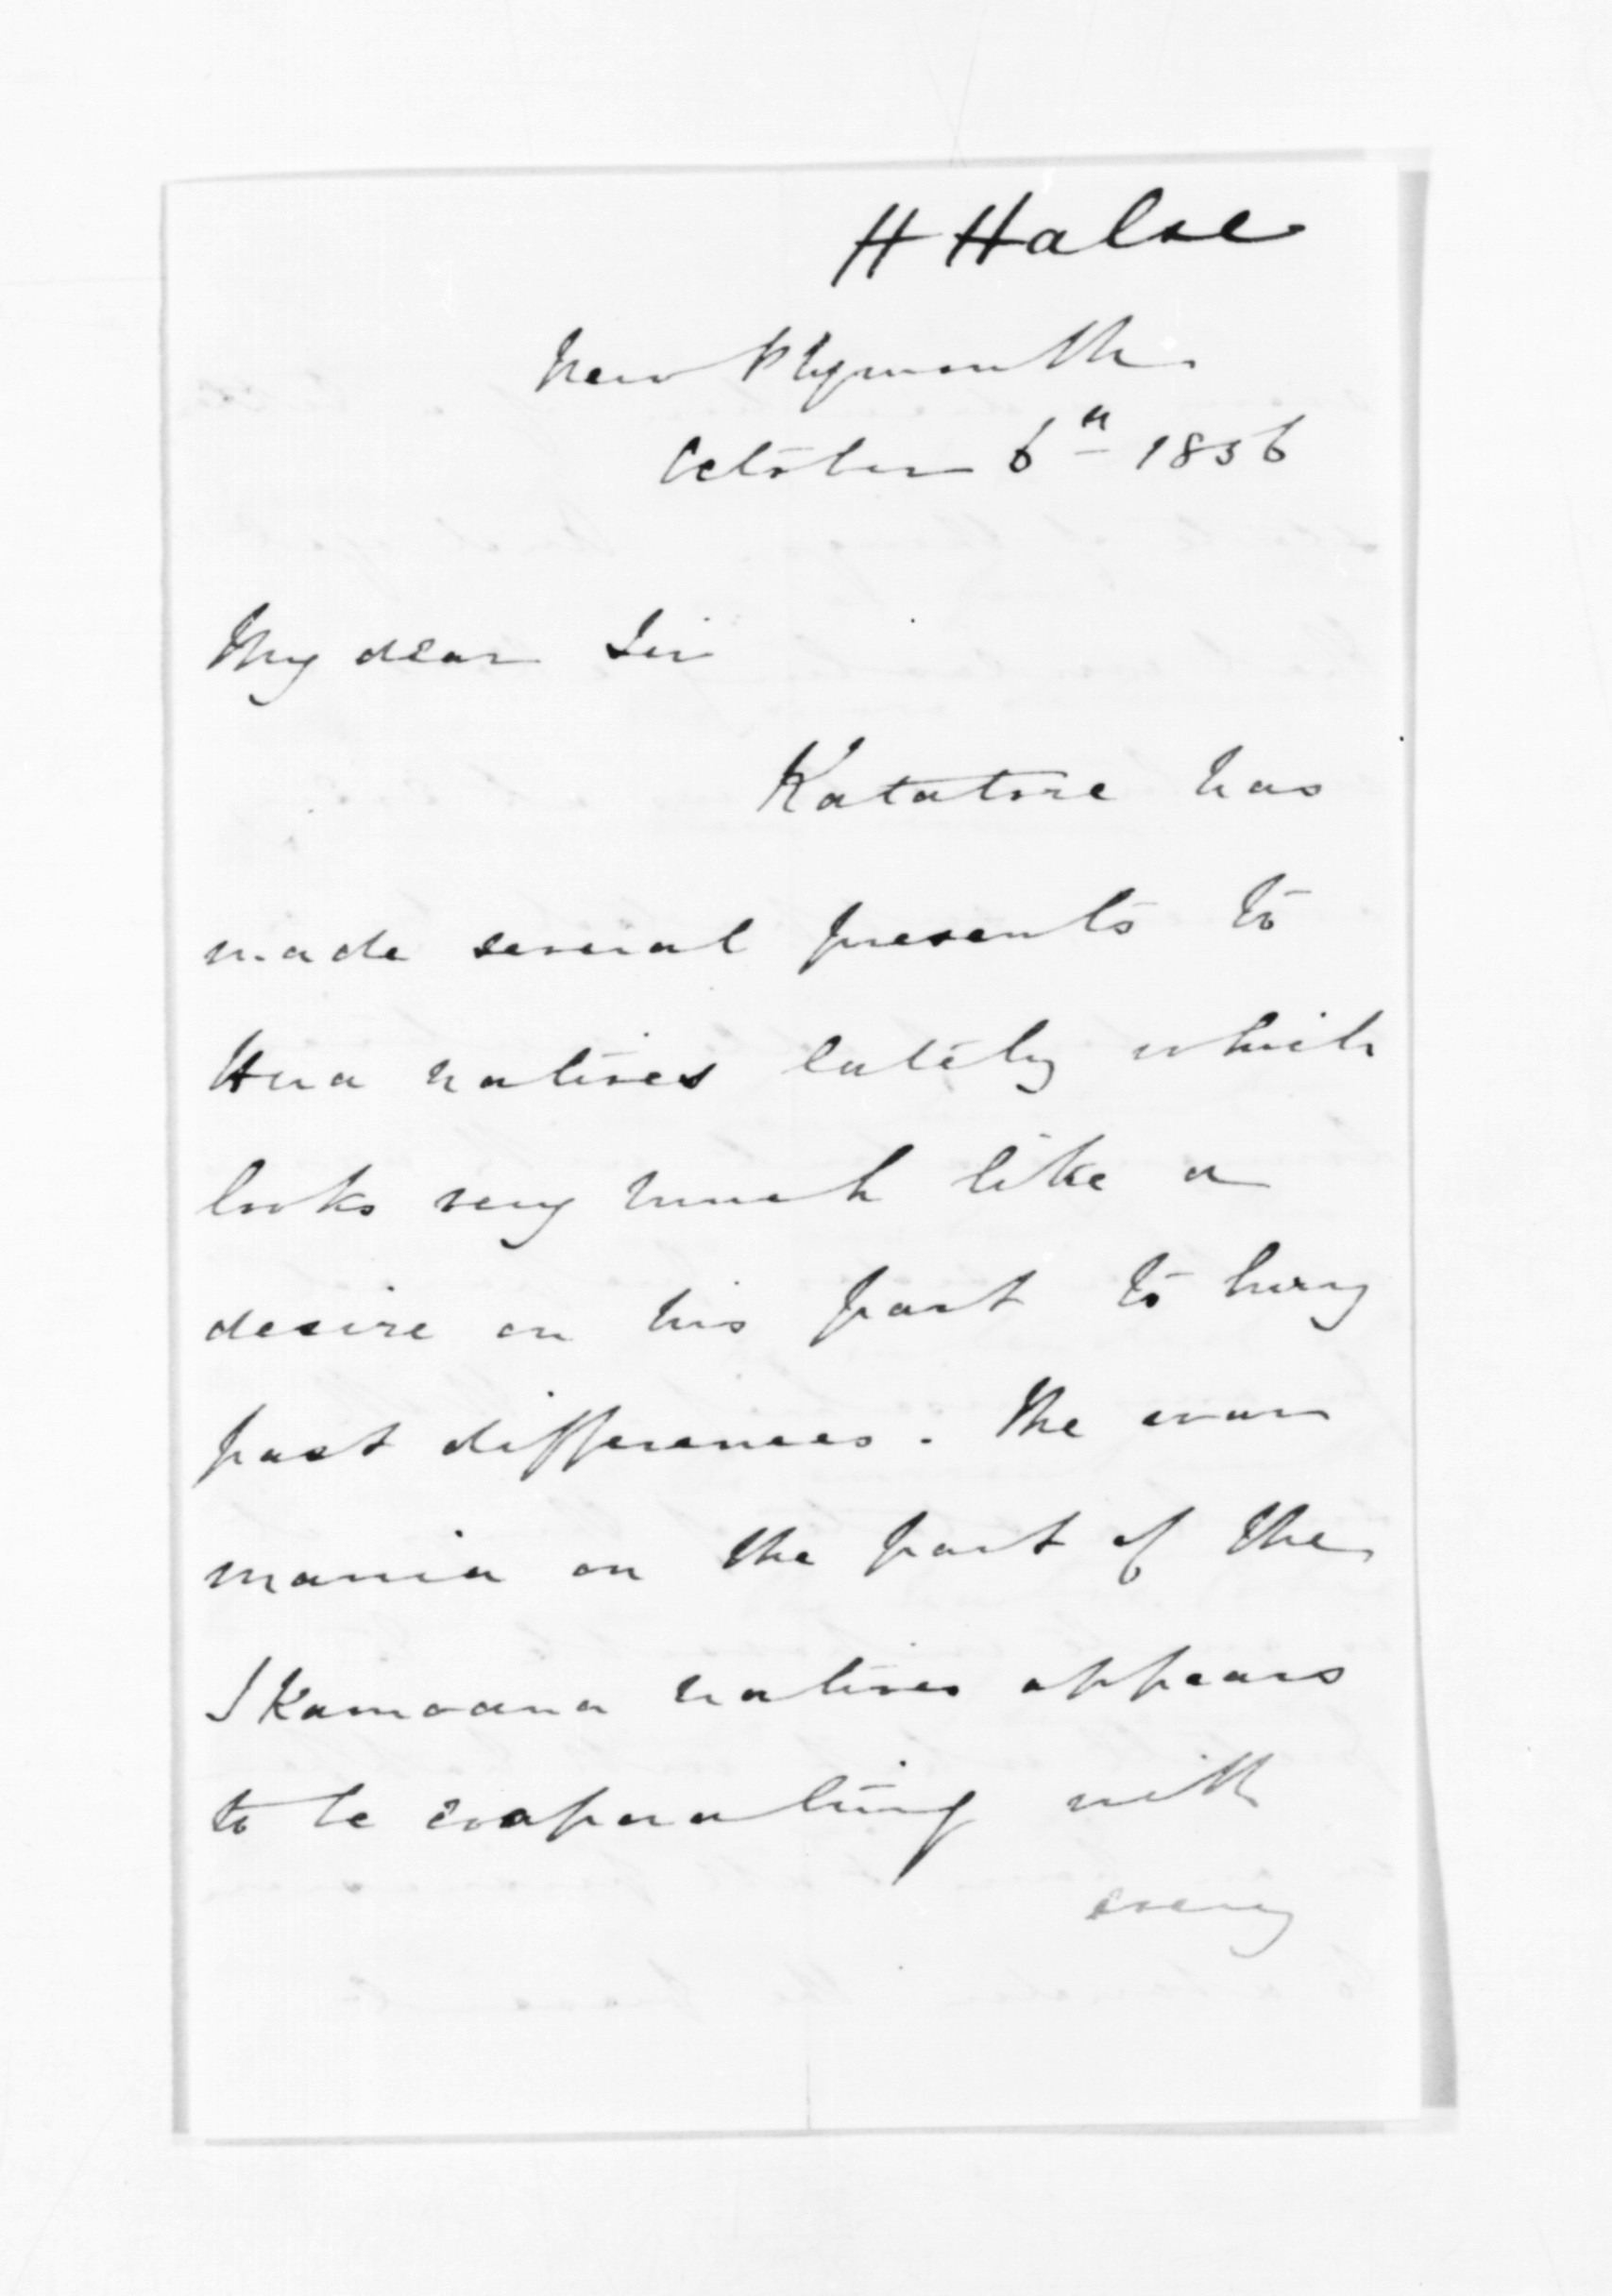 H Halse
New Plymouth
October 6th 1856
My dear Sir
Katatore has
made several presents to
Hua natives lately which
looks very much like a
desire on his part to bury
past differences. The war
mania on the part of the
Ikamoana natives appears
to be evaporating with
every